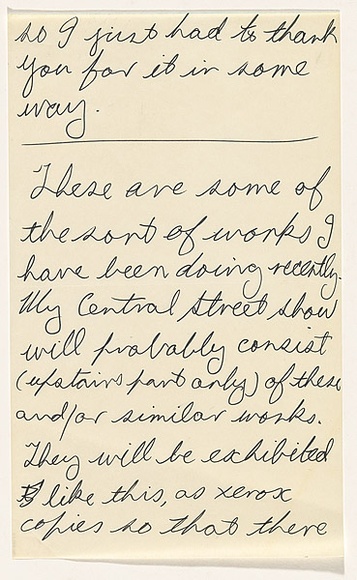 so I just had to thank
you for it in some
way.
These are some of
the sort of works I
have been doing recently.
My Central Street show
will probably consist
(upstairs part only) of these
and/or similar works.
They will be exhibited
like this, as xerox
copies so that there